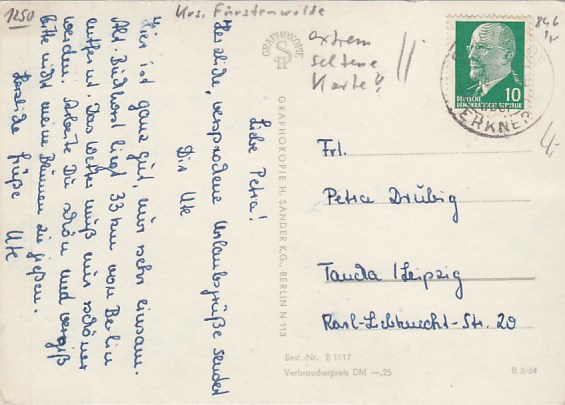 1250
Krs. Fürstenwalde
846
extrem
seltene
Karte!
GRAPHOKOPIE
SH
10
DEUTSCHE
DEMOKRATISCHE REPUBLIK
ERKNER
Liebe Petra!
Herzliche, versprochene Urlaubsgrüße sendet
Dir Ute
Hier ist ganz gut, nur sehr einsam.
Alt. Buchhorst liegt 33 km von Berlin
entfernt. Das Wetter muß nur schöner
werden. Arbeite Du schön und vergiß
bitte nicht meine Blumen zu gießen.
Herzliche Grüße Ute
GRAPHOKOPIE H. SANDER K.G., BERLIN N 113
Frl.
Petra Drübig
Taucha / Leipzig
Karl-Liebknecht-Str. 20
Best.-Nr. B 1117
Verbraucherpreis DM —.25
B 8/64